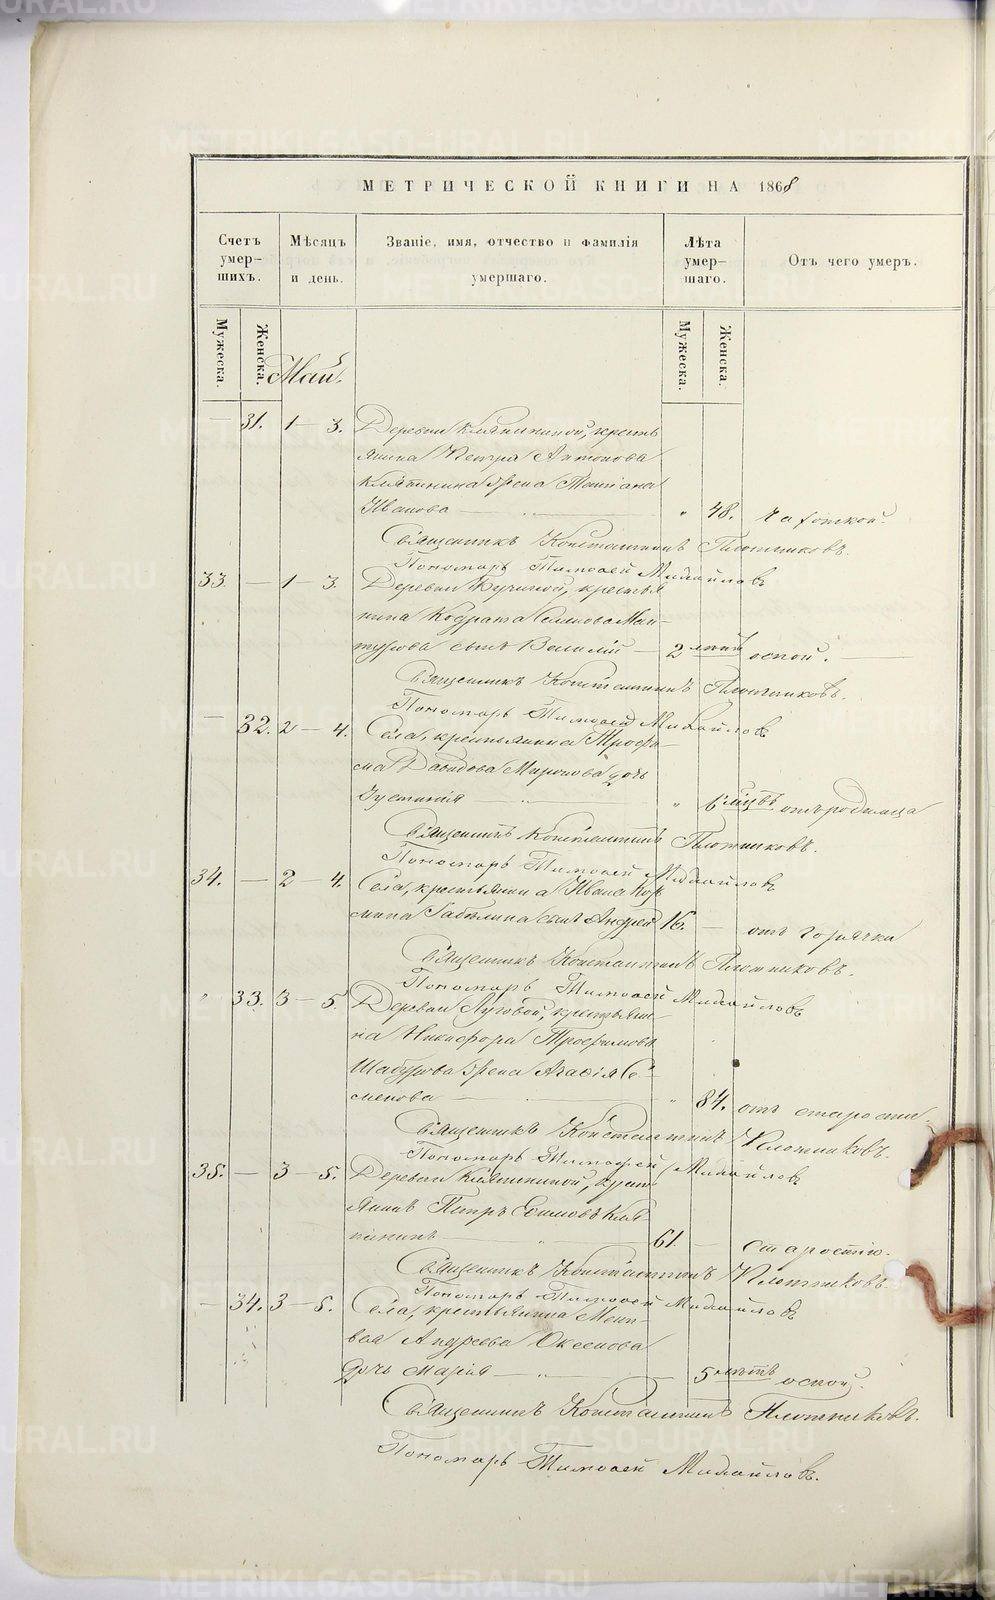 МЕТРИЧЕСКОЙ КНИГИ НА 1868
Счетъ умер-шихъ.
Мѣсяцъ и день.
Званіе, имя, отчество и фамилія умершаго.
Лѣта умер-шаго.
Отъ чего умеръ.
Мужеска.
Женска.
Май.
Мужеска.
Женска.
— 31. 1 — 3. Деревни Кляпининой, кресть
янина Петра Антонова
Кляпинина жена Татіана
Иванова — " — " 48. чахоткой.
Священникъ Константинъ Плотниковъ.
Пономарь Тимоѳей Михайловъ
33. — 1 — 3. Деревни крестья
нина Кодрата Ман-
турова сынъ Василій — 2 лѣтъ оспой. —
Священникъ Константинъ Плотниковъ.
Пономарь Тимоѳей Михайловъ
— 32. 2 — 4. Села, крестьянина Трофи-
ма Давидова Миронова дочь
Іустинія — " — " 6 мѣцъ отъ родимца
Священникъ Константинъ Плотниковъ.
Пономарь Тимоѳей Михайловъ
34. — 2 — 4. Села, крестьянина Ивана
сынъ Андрей 16. — отъ горячки
Священникъ Константинъ Плотниковъ.
Пономарь Тимоѳей Михайловъ
" 33. 3 — 5. Деревни Луговой, крестьяни-
на Никифора Трофимова
Шабурова жена Агаѳія Се-
менова — " 84. отъ старости
Священникъ Константинъ Плотниковъ.
Пономарь Тимофей Михайловъ
35. — 3 — 5. Деревни Кляпининой, крест
янинъ Петръ Кля-
пининъ — " — 61. — старостію.
Священникъ Константинъ Плотниковъ
Пономарь Тимоѳей Михайловъ
— 34. 3 — 5. Села, крестьянина
Андреева Оксенова
дочь Марія — " — 5 лѣтъ оспой.
Священникъ Константинъ Плотниковъ.
Пономарь Тимоѳей Михайловъ.
METRIKI.GASO-URAL.RU